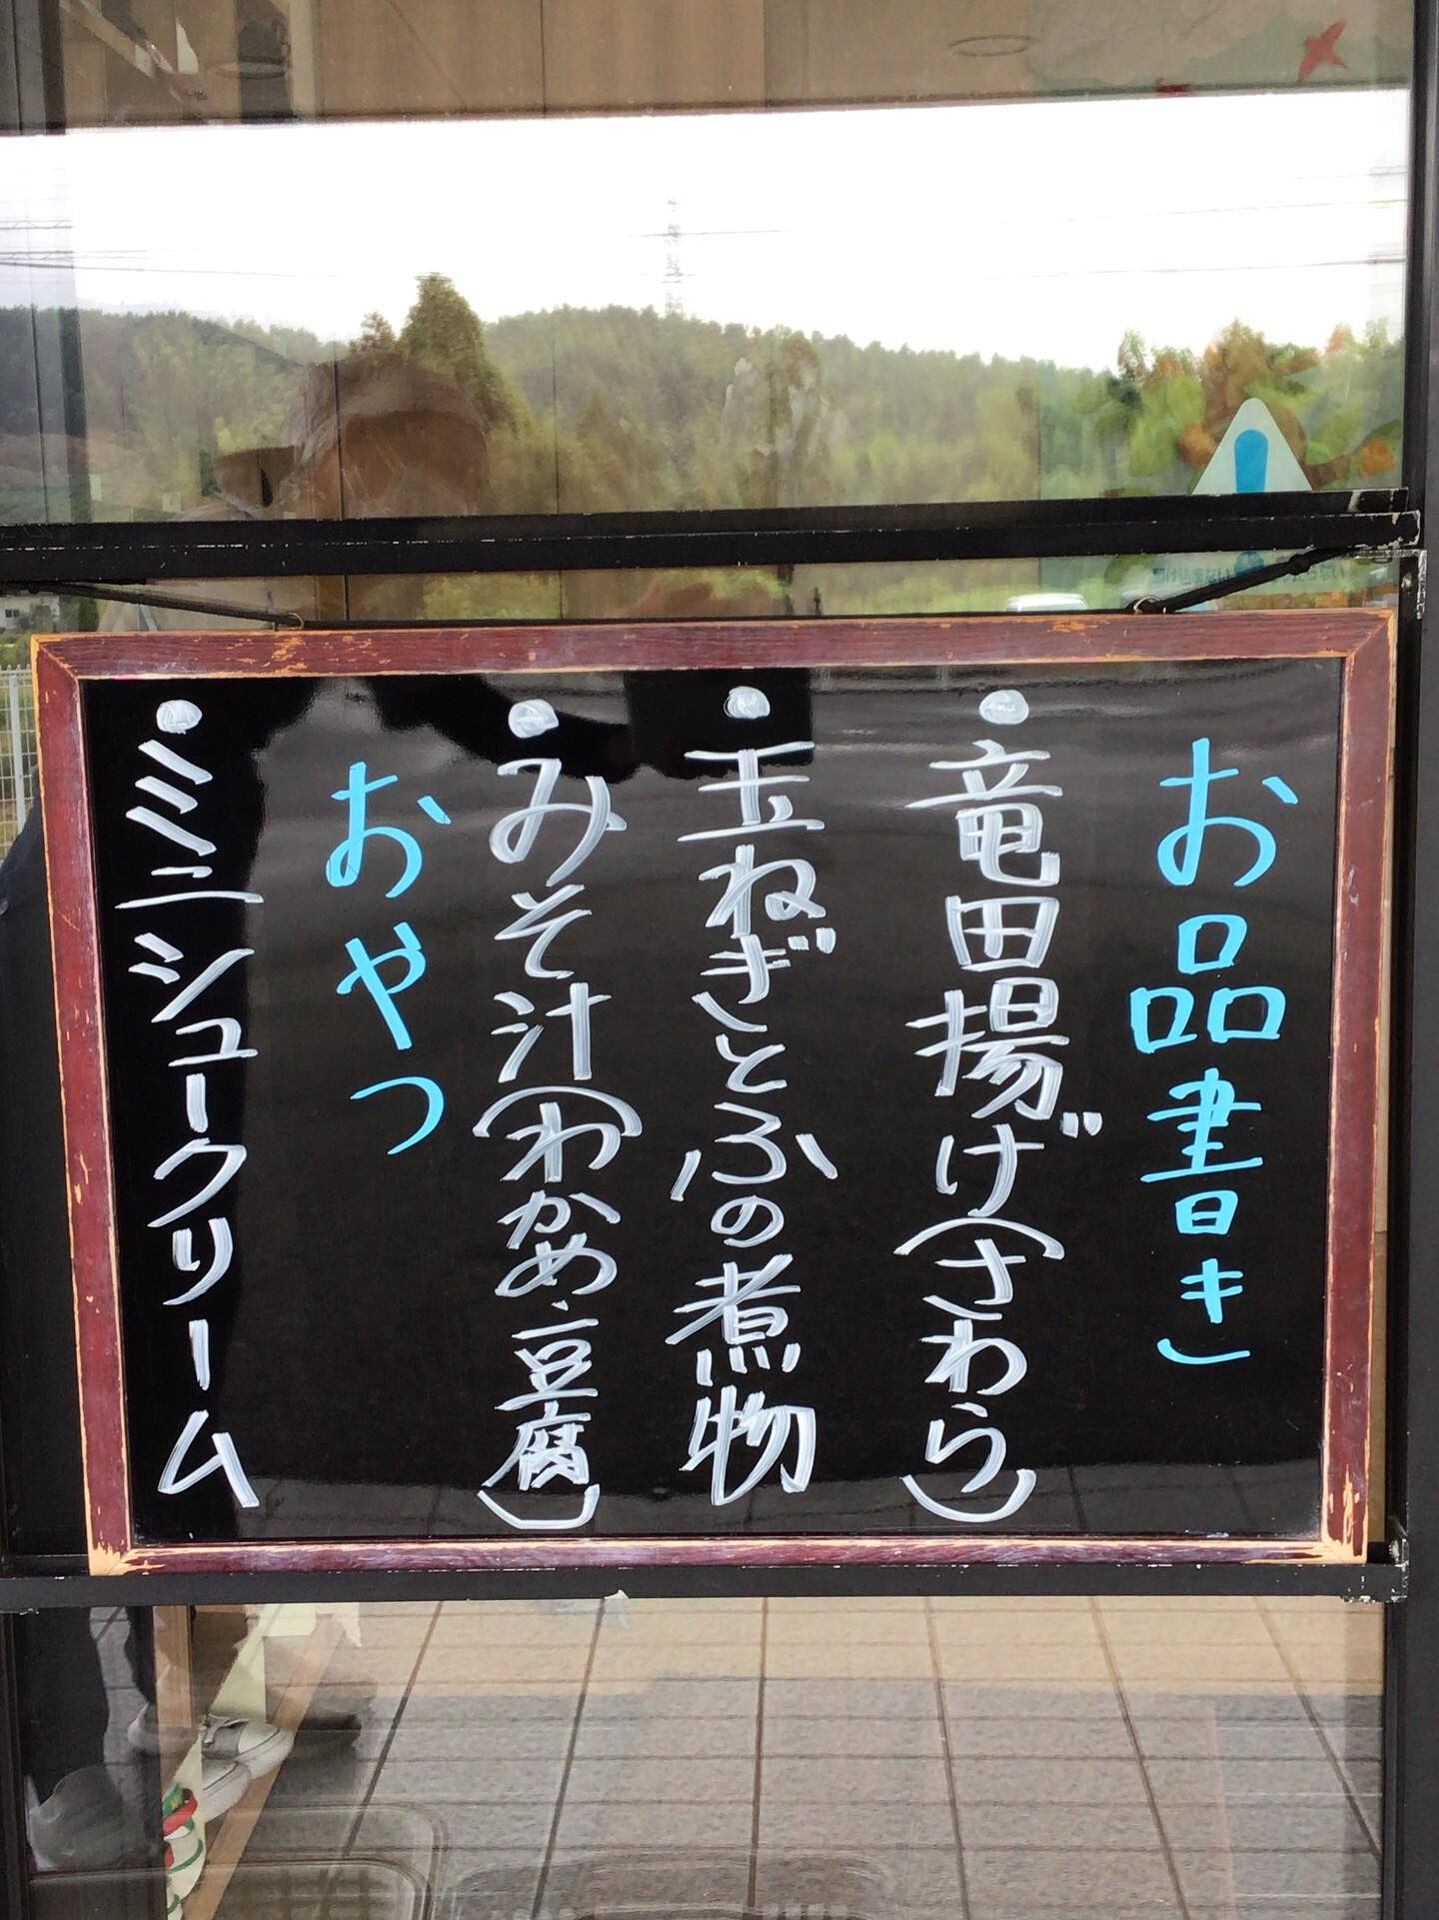 お品書き
●竜田揚げ(さわら)
●玉ねぎとふの煮物
●みそ汁(わかめ、豆腐)
おやつ
●ミニシュークリーム